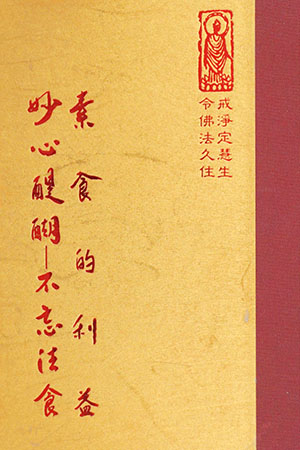 戒淨定慧生
令佛法久住
素食的利益
妙心醍醐—不忘法食